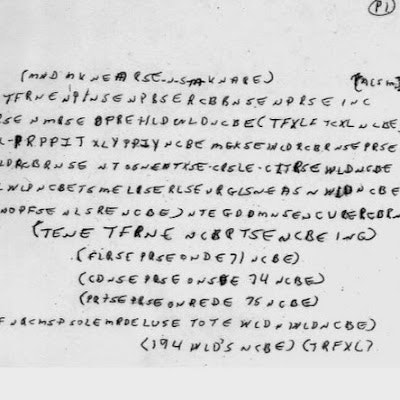 P1
(MND MKNEARSE-N-S-M-KNARE) (ACSM
TFRNENPINSENPBSERCBBNSENPRSE INC
RSE NMRSE OPREHLDWLDNCBE(TFXLFTCXL NCBE
L-PRPPIT XLYPPIYNCBE MGKSEWLDRCBRNSEPRSE
LDRCBRNSE NTSGNENTXSE-CRSLE-CITRSEWLDNCBE
LWLDNCBETSMELRSERLSEURGLSNEASNWLDNCBE
NOPFSENLSRENCBE) NTEGDDMNSENCURERCBRN
(TENE TFRNE NCBRTSENCBE ING)
(FLRSE PRSE ONDE 71 NCBE)
(CDNSE PRSE ONSDE 74 NCBE)
(PRTSE PRSE ONREDE 75 NCBE)
FNRCMSPSOLEMRDELUSE TOTE WLDNWLDNCBE)
(194 WLD'S NCBE) (TRFXL